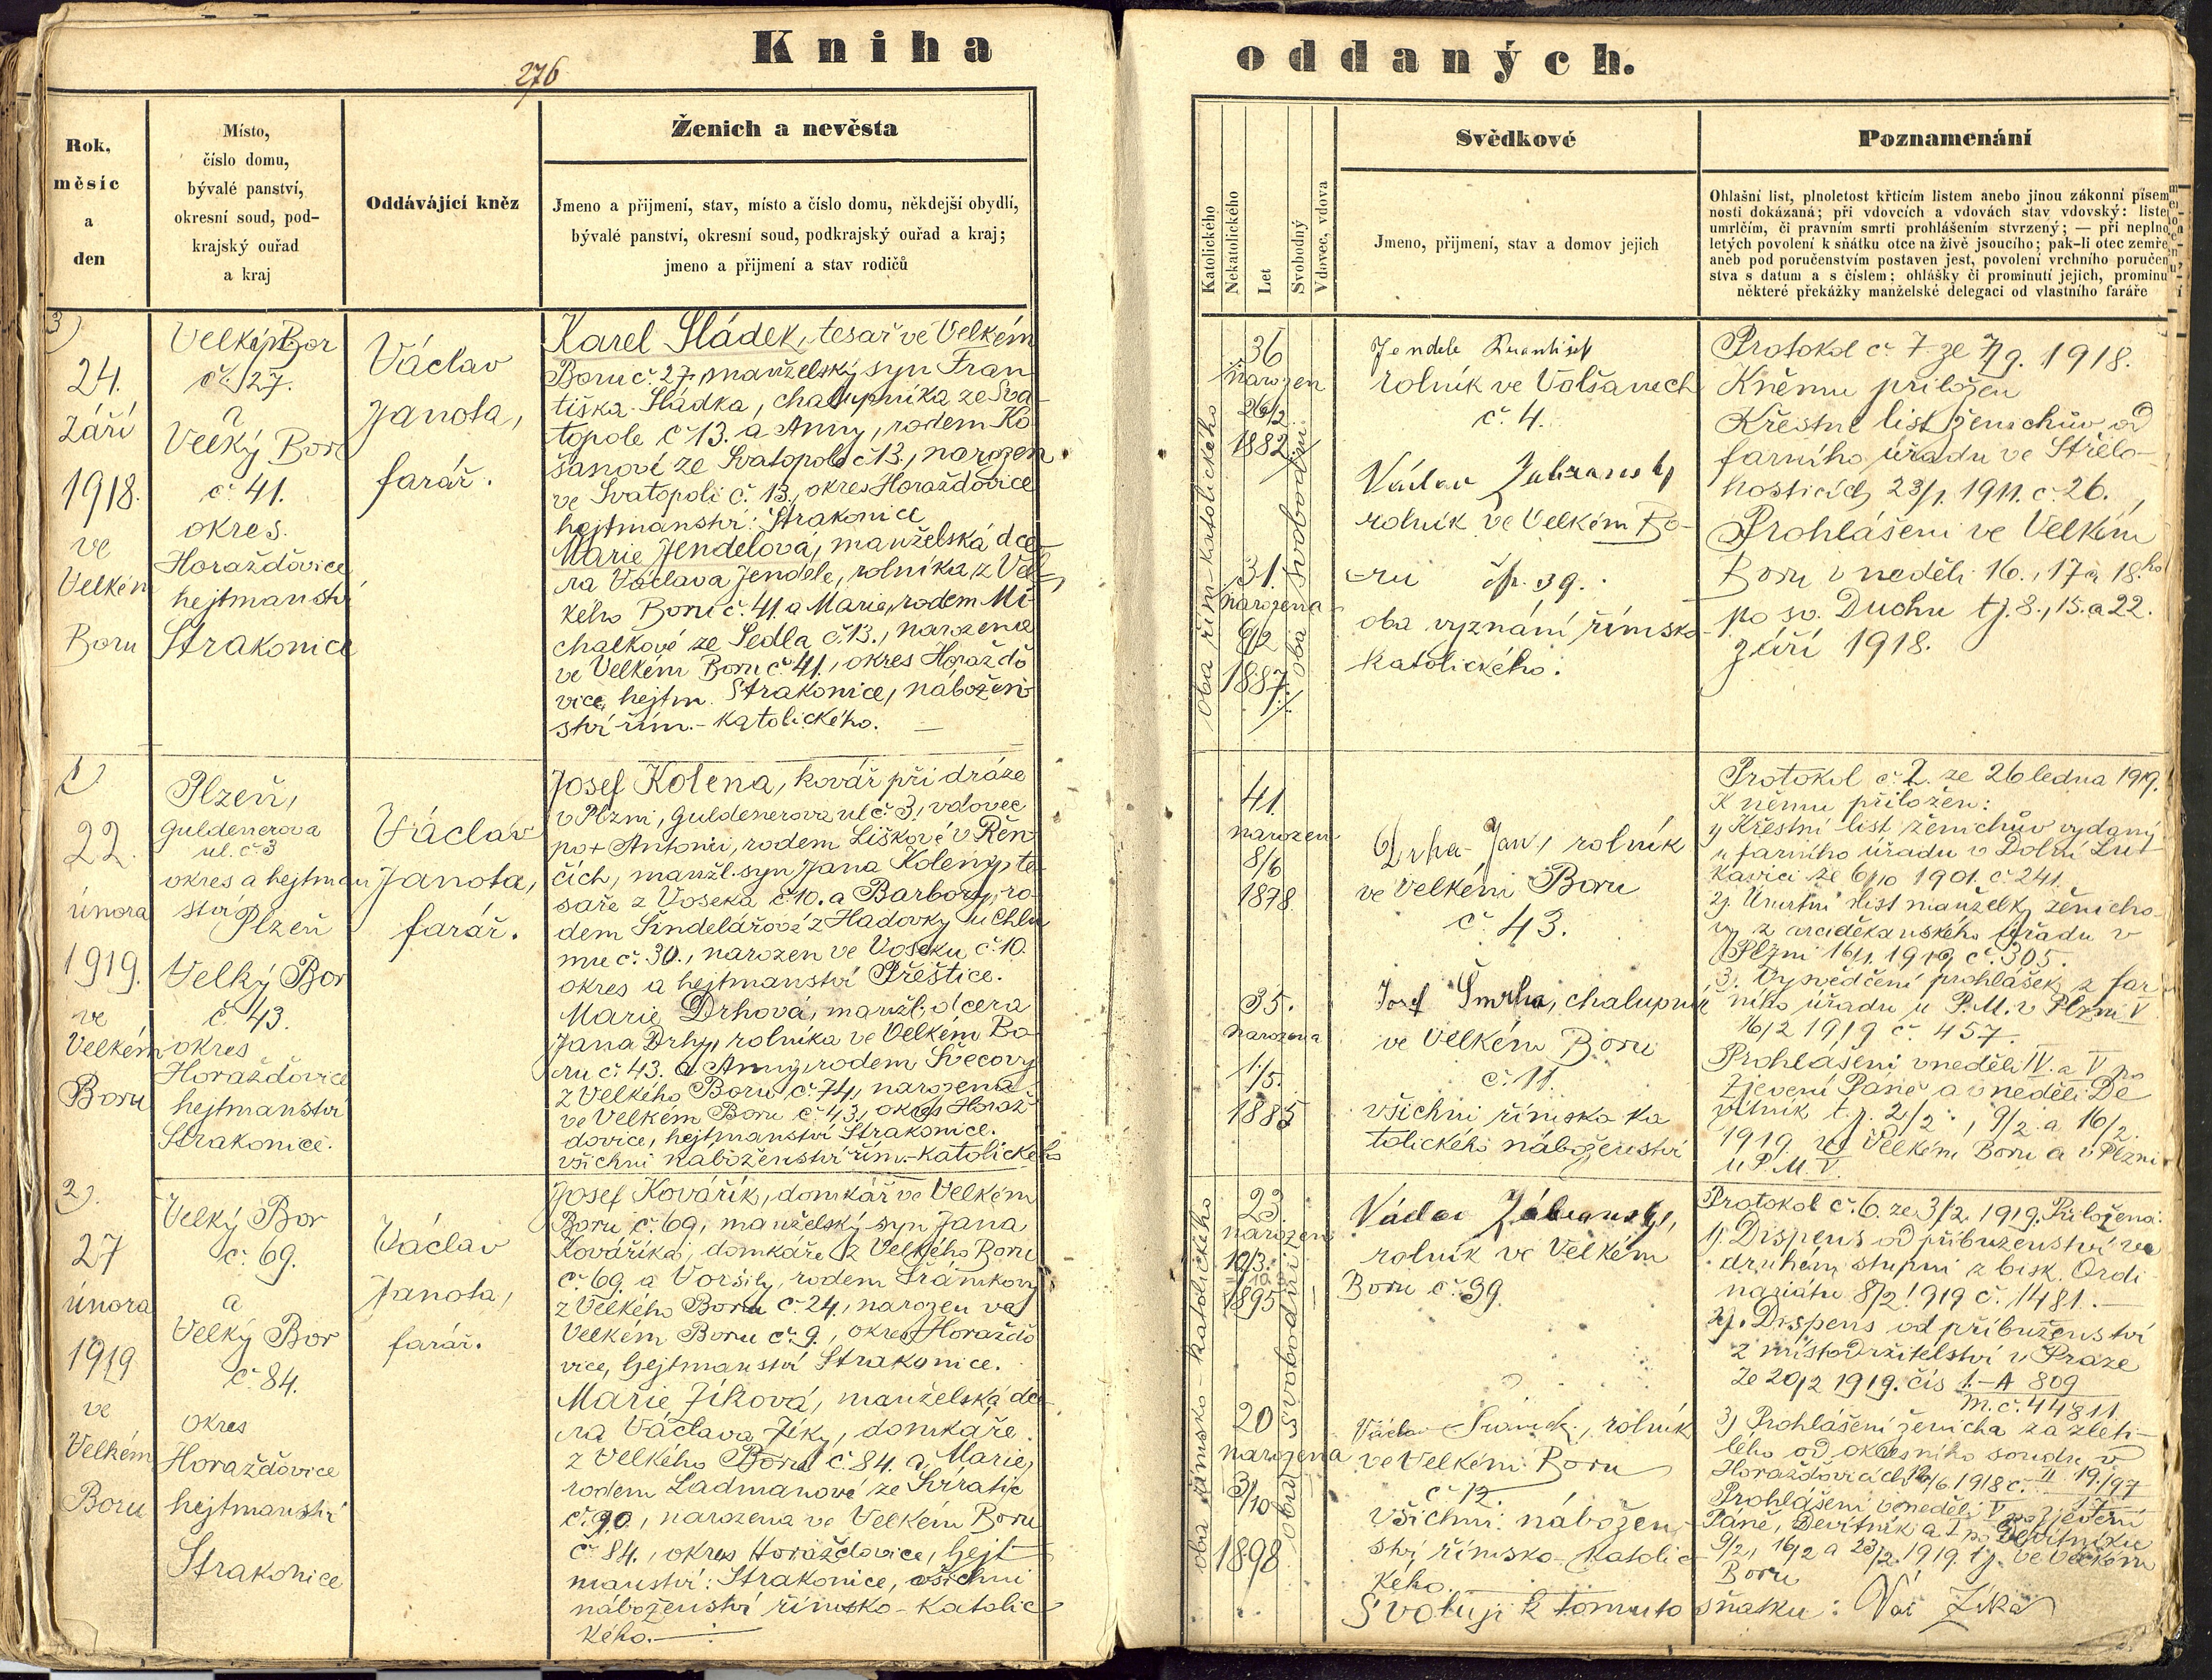 Kniha
oddaných.
276
Rok,
měsíc
a
den
Místo,
číslo domu,
bývalé panství,
okresní soud, pod-
krajský ouřad
a kraj
Oddávající kněz
Ženich a nevěsta
Jmeno a přijmení, stav, místo a číslo domu, někdejší obydlí,
bývalé panství, okresní soud, podkrajský ouřad a kraj;
jmeno a přijmení a stav rodičů
Katolického
Nekatolického
Let
Svobodný
Vdovec, vdova
Svědkové
Jmeno, přijmení, stav a domov jejich
Poznamenání
Ohlašní list, plnoletost křticím listem anebo jinou zákonní písem
nosti dokázaná; při vdovcích a vdovách stav vdovský: liste
umrlčím, či právním smrti prohlášením stvrzený; — při neplno
letých povolení k sňátku otce na živě jsoucího; pak-li otec zemře
aneb pod poručenstvím postaven jest, povolení vrchního poručen
stva s datum a s číslem; ohlášky či prominutí jejich, prominu
některé překážky manželské delegací od vlastního faráře
3)
24.
září
1918.
ve
Velkém
Boru
Velký Bor
č. 27.
a
Velký Bor
č. 41.
okres.
Horažďovice
hejtmanství
Strakonice
Václav
Janota,
farář.
Karel Sládek, tesař ve Velkém
Boru č. 27, manželský syn Fran
tiška Sládka, chalupníka ze Sva-
topole č 13. a Anny, rodem Ko
šanové ze Svatopole č 13., narozen
ve Svatopoli č. 13., okres Horažďovice
hejtmanství: Strakonice
Marie Jendelová, manželská dce-
ra Václava Jendele, rolníka, z Vel-
kého Boru č. 41. a Marie, rodem Mi-
chalkové ze Sedla č. 13., narozena
ve Velkém Boru č. 41., okres Horažďo
vice, hejtm. Strakonice, nábožen
ství řím.-katolického.
oba řím-katolického
36
narozen
26/2
1882.
31.
narozena
6/2
1887.
oba svobodni
Jendele František
rolník ve Volšanech
č. 4.
Václav
rolník ve Velkém Bo-
ru čp. 39.
oba vyznání římsko-
katolického.
Protokol č. 7 ze 7/9. 1918.
K němu přiložen
Křestní list ženichův od
farního úřadu ve Střelo-
hosticích 23/1. 1911. č. 26.
Prohlášení ve Velkém
Boru v neděli 16., 17 a 18.ho
po sv. Duchu tj. 8., 15. a 22.
září 1918.
1)
22.
února
1919.
ve
Velkém
Boru
Plzeň,
Guldenerova
ul. č. 3
okres a hejtman
ství
Plzeň
Velký Bor
č. 43.
okres
Horažďovice
hejtmanství
Strakonice.
Václav
Janota,
farář.
Josef Kolena, kovář při dráze
v Plzni, Guldenerova ul č. 3, vdovec
po + Antonii, rodem Liškové v Řen
čích, manžl. syn Jana Koleny, te-
saře z Voseka č 10. a Barbory, ro-
dem Šindelářové z Hadovky u Chlu
mu č. 30., narozen ve Voseku č. 10.
okres a hejtmanství Přeštice.
Marie Drhová, manžl. dcera
Jana Drhy, rolníka ve Velkém Bo-
ru č. 43. a Anny, rodem Švecovy
z Velkého Boru č. 74, narozena
ve Velkém Boru č. 43, okres Horaž
dovice, hejtmanství Strakonice.
všichni náboženství řím.-katolického
41.
narozen
8/6
1878
35.
narozena
1./5.
1885
Drha Jan, rolník
ve Velkém Boru
č. 43.
Josef Šmrha, chalupník
ve Velkém Boru
č. 11.
všichni římsko ka
tolického náboženství
Protokol č. 2. ze 26 ledna 1919.
K němu přiložen:
1) Křestní list ženichův vydaný
u farního úřadu v Dolní Lu-
kavici ze 6/10 1901. č. 241.
2). Úmrtní list manželky ženicho
vy z arciděkanského úřadu v
Plzni 16/1. 1919 č. 305.
3. Vysvědčení prohlášek z far-
ního úřadu u P. M. v Plzni V
16/2 1919 č. 457.
Prohlášení v neděli IV. a V. po
Zjevení Páně a v neděli De
vítník t. j. 2/2., 9/2. a 16/2.
1919. ve Velkém Boru a v Plzni
u P. M. V.
2).
27
února
1919
ve
Velkém
Boru
Velký Bor
č. 69.
a
Velký Bor
č. 84.
okres
Horažďovice
hejtmanství
Strakonice
Václav
Janota,
farář.
Josef Kovářík, domkář ve Velkém
Boru č. 69, manželský syn Jana
Kováříka, domkáře z Velkého Boru
č. 69. a Voršily, rodem Šrámkovy
z Velkého Boru č. 24., narozen ve
Velkém Boru č. 9., okres Horažďo
vice, hejtmanství Strakonice.
Marie Jíkova, manželská dce-
ra Václava Jíky, domkáře
z Velkého Boru č. 84. a Marie,
rodem Ladmanové ze Svíratic
č. 90., narozena ve Velkém Boru
č. 84., okres Horažďovice, hejt
manství: Strakonice, všichni
náboženství římsko-katolic
kého.
oba římsko-katolického
23
narozen
1895
20
narozena
3/10
1898
oba svobodní
Václav
rolník ve Velkém
Boru č. 39.
Václav rolník
ve Velkém Boru
č 12.
Všichni nábožen
ství římsko-katolic
kého.
Svoluji k tomuto sňatku: Vác Jíka
Protokol č. 6. ze 3/2. 1919. Přiložena:
1). Dispens od příbuzenství ve
druhém stupni z bisk. Ordi
nariátu 8/2. 1919 č. 1481.
2). Dispens od příbuzenství
z místodržitelství v Praze
ze 20/2 1919. čís 1.-A 809
m. č. 44811.
3) Prohlášení ženicha za zleti-
lého od okresního soudu v
Horažďovicích
Prohlášení v neděli V po zjevení
Páně, Devítník a I po Devítníku
9/2, 16/2 a 23/2. 1919. tj. ve Velkém
Boru